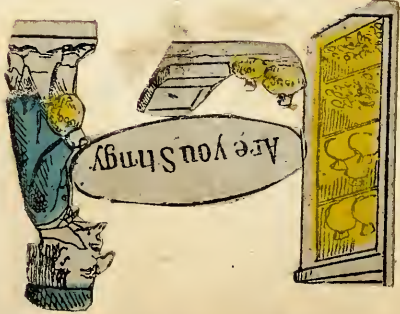 Are you Stingy